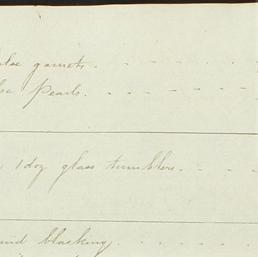 garnets. - - - - -
Pearls. - - - - - -
1 doz glass tumblers. - - -
blacking. - - - - -